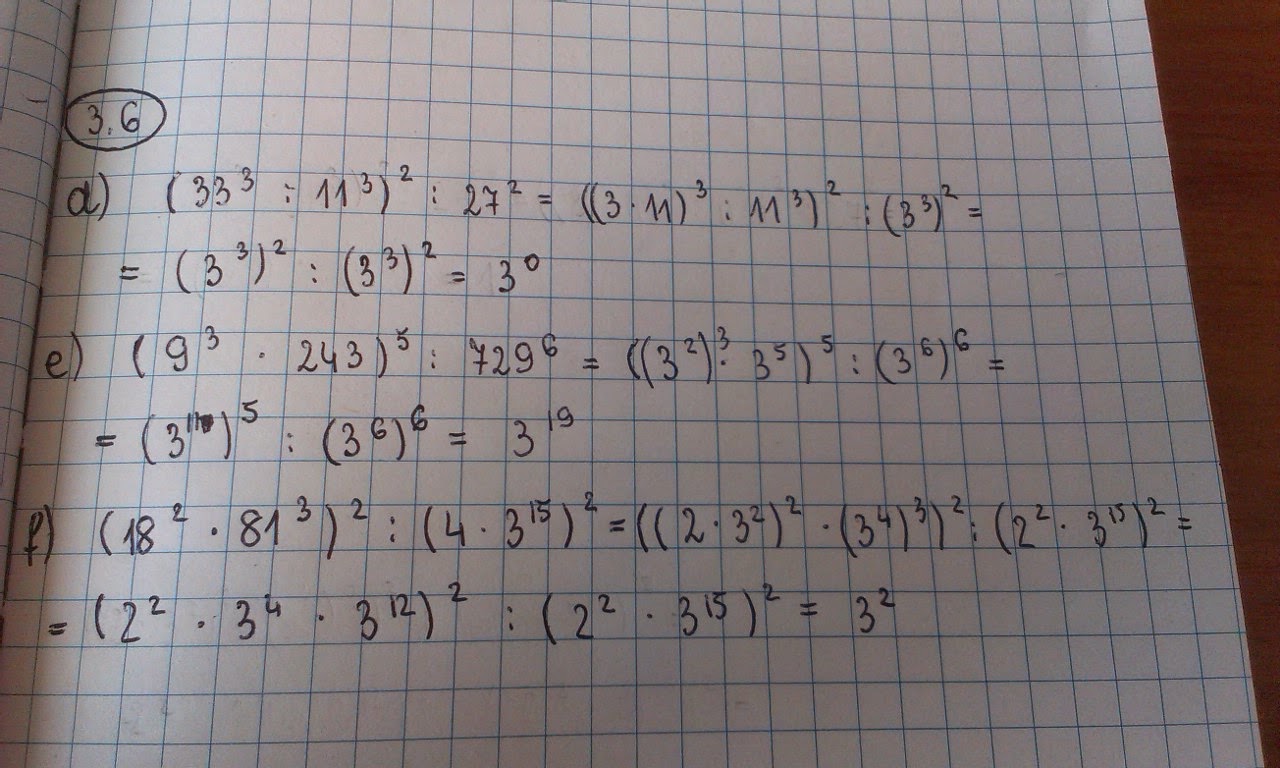 3.6
d) (33³ : 11³)² : 27² = ((3·11)³ : 11³)² : (3³)² =
= (3³)² : (3³)² = 3⁰
e) (9³ · 243)⁵ : 729⁶ = ((3²)³ · 3⁵)⁵ : (3⁶)⁶ =
= (3¹¹)⁵ : (3⁶)⁶ = 3¹⁹
f) (18² · 81³)² : (4 · 3¹⁵)² = ((2·3²)² · (3⁴)³)² : (2² · 3¹⁵)² =
= (2² · 3⁴ · 3¹²)² : (2² · 3¹⁵)² = 3²